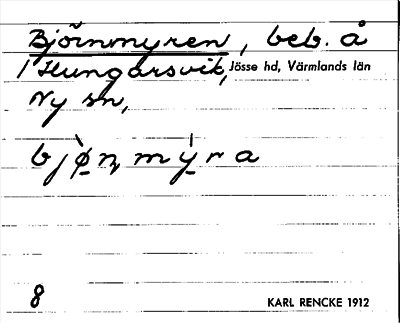 Björnmyren, beb. å
1 Hungarsvik, Jösse hd, Värmlands län
Ny sn,
bjø̀n̥mỳra
8 KARL RENCKE 1912